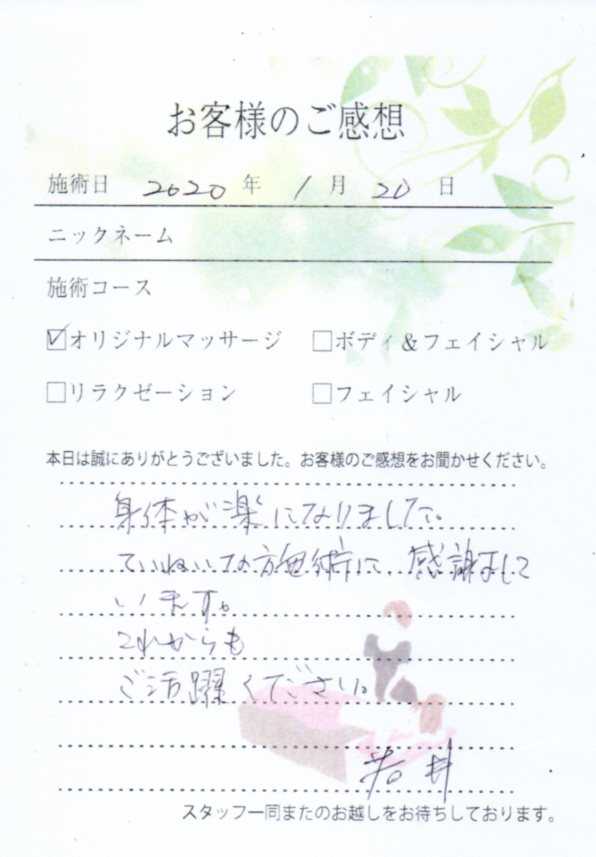 お客様のご感想
施術日 2020 年 1 月 20 日
ニックネーム
施術コース
☑オリジナルマッサージ □ボディ&フェイシャル
□リラクゼーション □フェイシャル
本日は誠にありがとうございました。お客様のご感想をお聞かせください。
身体が楽になりました。
ていねいな施術に感謝して
います。
これからも
ご活躍ください。
井
スタッフ一同またのお越しをお待ちしております。